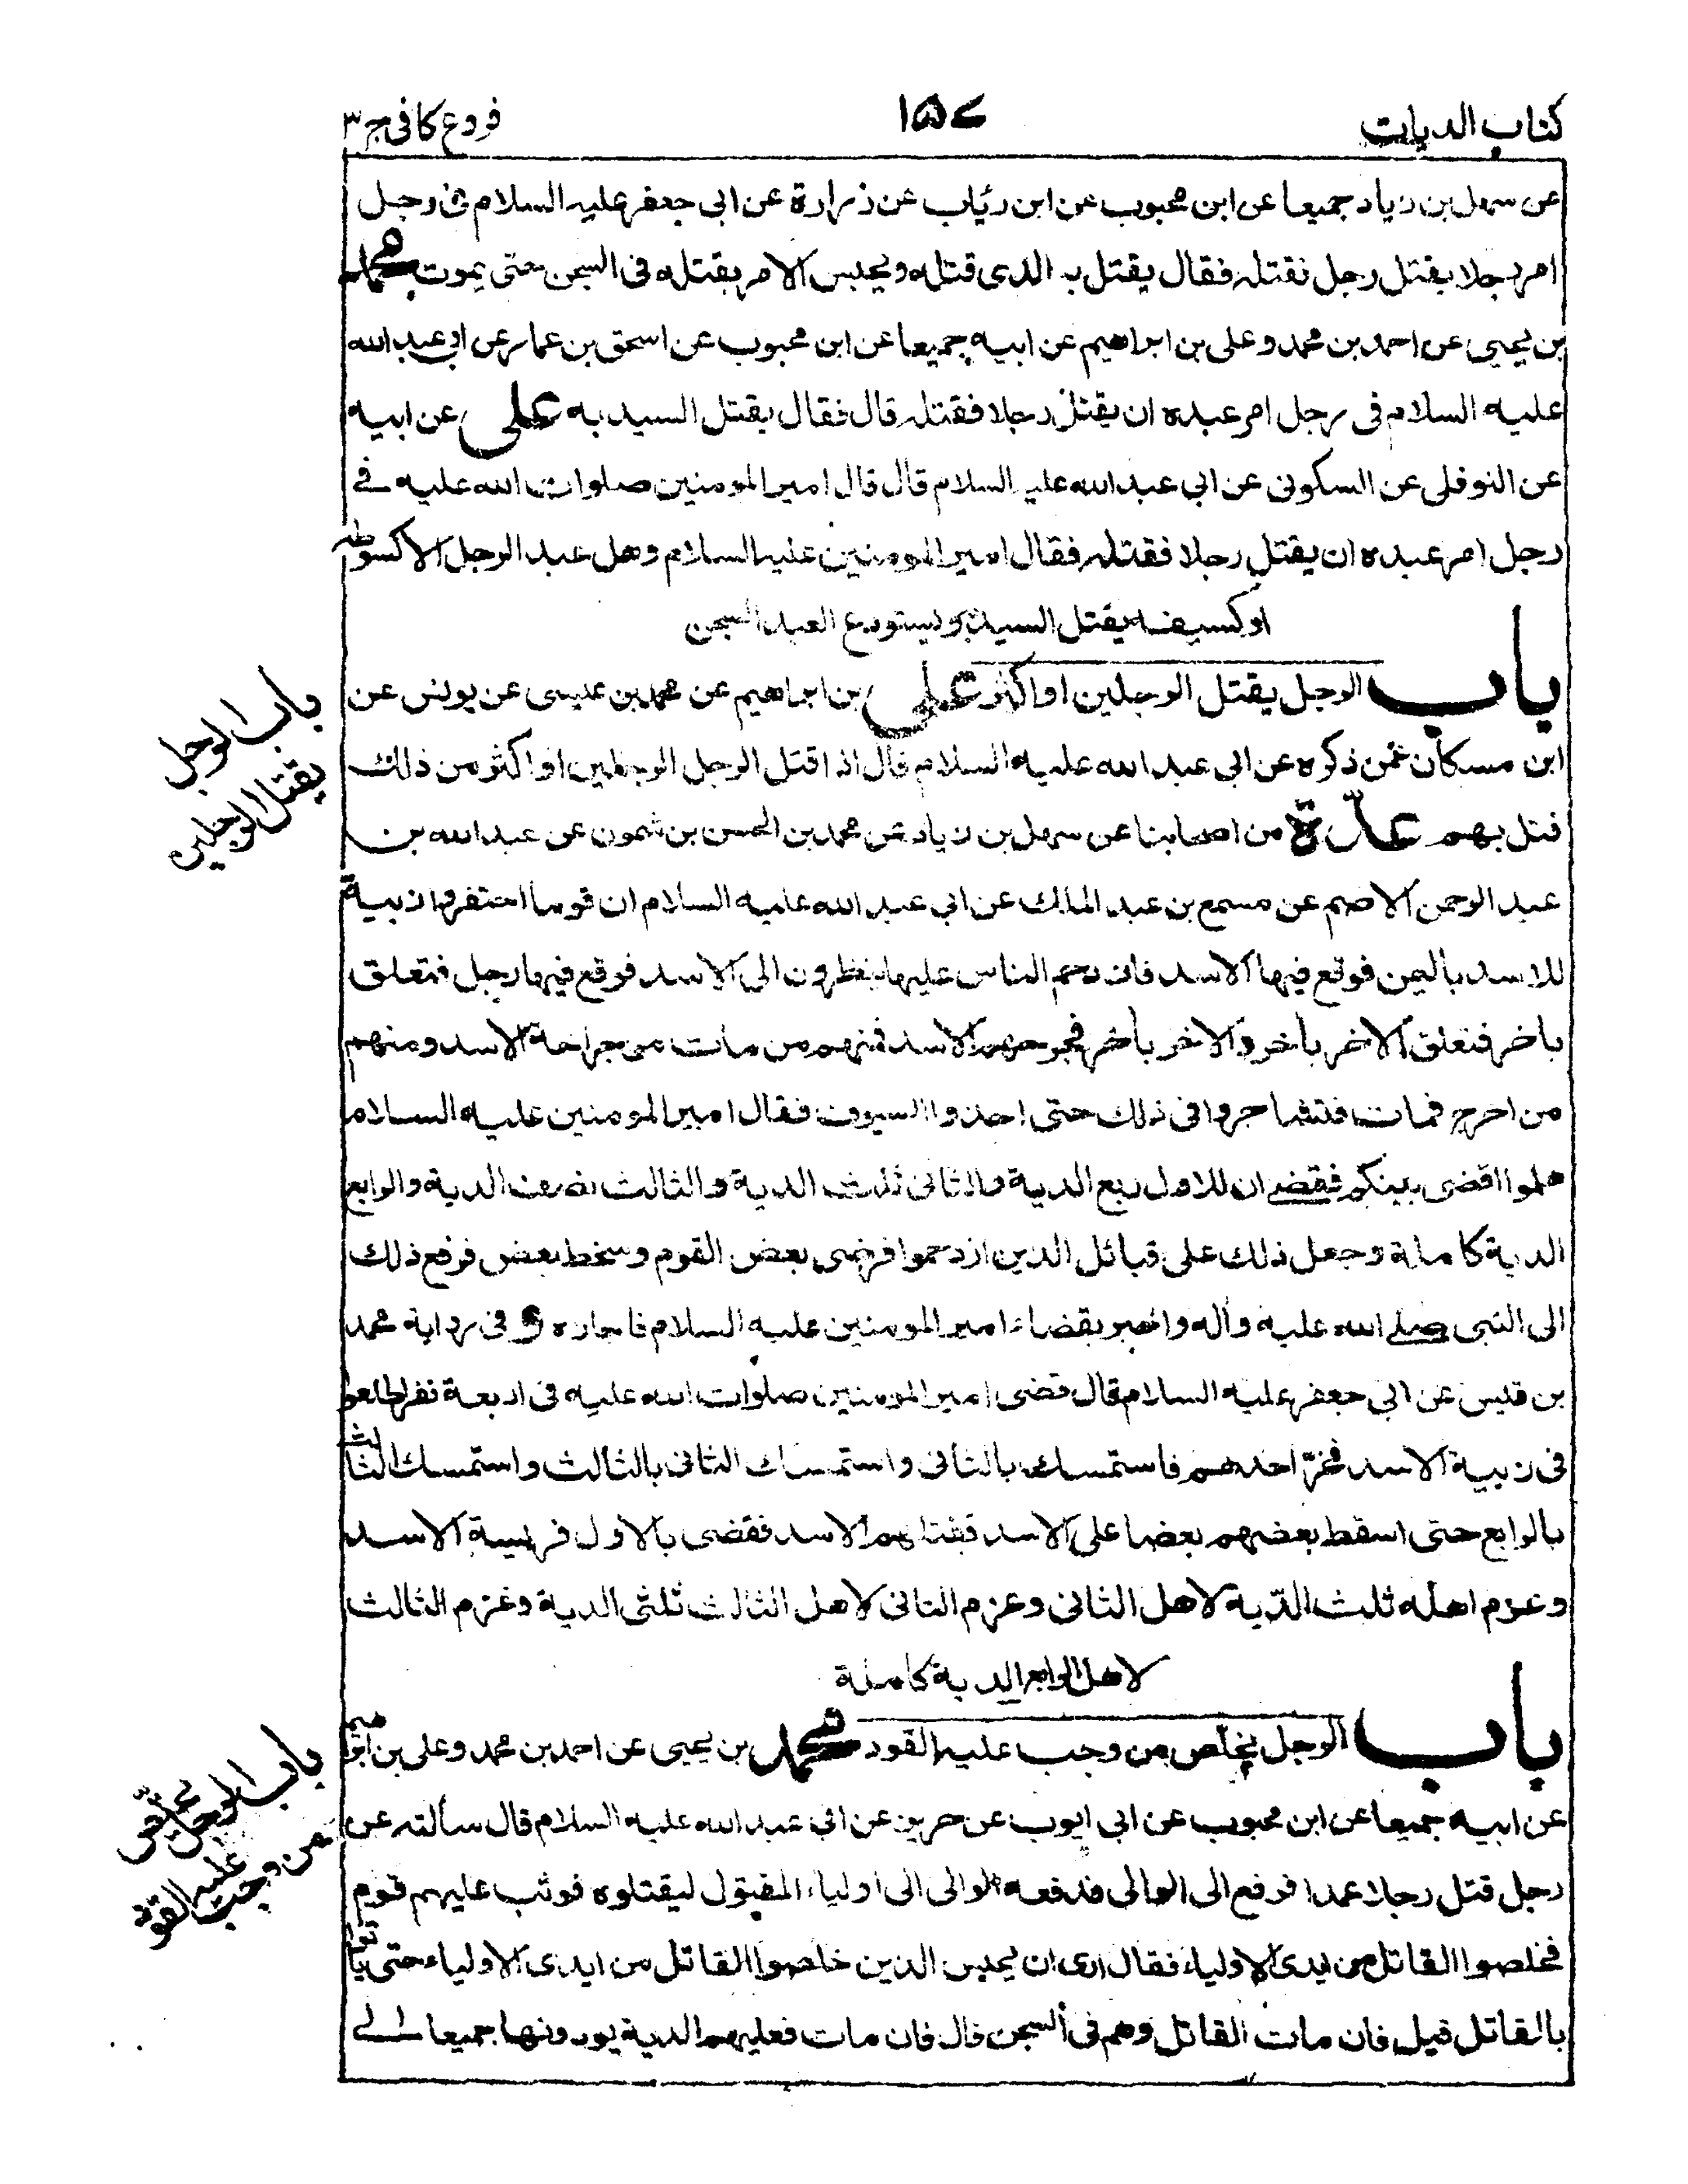 كتاب الديات ١٥٧ فروع كافى ج ٣
عن سهل بن زياد جميعا عن ابن محبوب عن ابن رئاب عن زرارة عن ابى جعفر عليه السلام فى رجل
امر رجلا بقتل رجل فقتله فقال يقتل به الذى قتله ويحبس الامر بقتله فى السجن حتى يموت محمد
بن يحيى عن احمد بن محمد وعلى بن ابراهيم عن ابيه جميعا عن ابن محبوب عن اسحق بن عمار عن ابى عبد الله
عليه السلام فى رجل امر عبده ان يقتل رجلا فقتله قال فقال يقتل السيد به على عن ابيه
عن النوفلى عن السكونى عن ابى عبد الله عليه السلام قال قال امير المومنين صلوات الله عليه فے
رجل امر عبده ان يقتل رجلا فقتله فقال امير المومنين عليه السلام وهل عبد الرجل الا كسوطه
او كسيفه يقتل السيد به ويستودع العبد السجن
باب الرجل يقتل الرجلين او اكثر على بن ابراهيم عن محمد بن عيسى عن يونس عن
باب الرجل
يقتل الرجلين
ابن مسكان عمن ذكره عن ابى عبد الله عليه السلام قال اذا قتل الرجل الرجلين او اكثر من ذلك
قتل بهم عدّة من اصحابنا عن سهل بن زياد عن محمد بن الحسن بن شمون عن عبد الله بن
عبد الرحمن الاصم عن مسمع بن عبد الملك عن ابى عبد الله عليه السلام ان قوما احتفروا زبية
للاسد باليمن فوقع فيها الاسد فازدحم الناس عليها ينظرون الى الاسد فوقع فيها رجل فتعلق
بأخر فتعلق الاخر بأخر والاخر بأخر فجرحهم الاسد فمنهم من مات من جراحة الاسد ومنهم
من اخرج فمات فتشاجروا فى ذلك حتى اخذوا السيوف فقال امير المومنين عليه السلام
هلموا اقضى بينكم فقضے ان للاول ربع الدية والثانى ثلث الدية والثالث نصف الدية والرابع
الدية كاملة وجعل ذلك على قبائل الذين ازدحموا فرضى بعض القوم وسخط بعض فرفع ذلك
الى النبى صلے الله عليه وأله واخبر بقضاء امير المومنين عليه السلام فاجازه و فى رواية محمد
بن قيس عن ابى جعفر عليه السلام قال قضى امير المومنين صلوات الله عليه فى اربعة نفر اطلعوا
فى زبية الاسد فخرّ احدهم فاستمسك بالثانى واستمسك الثانى بالثالث واستمسك الثالث
بالرابع حتى اسقط بعضهم بعضا على الاسد فقتلهم الاسد فقضى بالاول فريسة الاسد
وغرم اهله ثلث الدّية لاهل الثانى وغرم الثانى لاهل الثالث ثلثى الدية وغرم الثالث
لاهل الرابع الدية كاملة
باب الرجل يخلّص من وجب عليه القود محمد بن يحيى عن احمد بن محمد وعلى بن ابراهيم
باب الرجل يخلّص
من وجب عليه القود
عن ابيه جميعا عن ابن محبوب عن ابى ايوب عن حريز عن ابى عبد الله عليه السلام قال سألته عن
رجل قتل رجلا عمدا فرفع الى الوالى فدفعه الوالى الى أولياء المقتول ليقتلوه فوثب عليهم قوم
فخلصوا القاتل من ايدى الاولياء فقال ارى ان يحبس الذين خلصوا القاتل من ايدى الاولياء حتى يأتوا
بالقاتل قيل فان مات القاتل وهم فى السجن قال فان مات فعليهم الدية يودونها جميعا الے